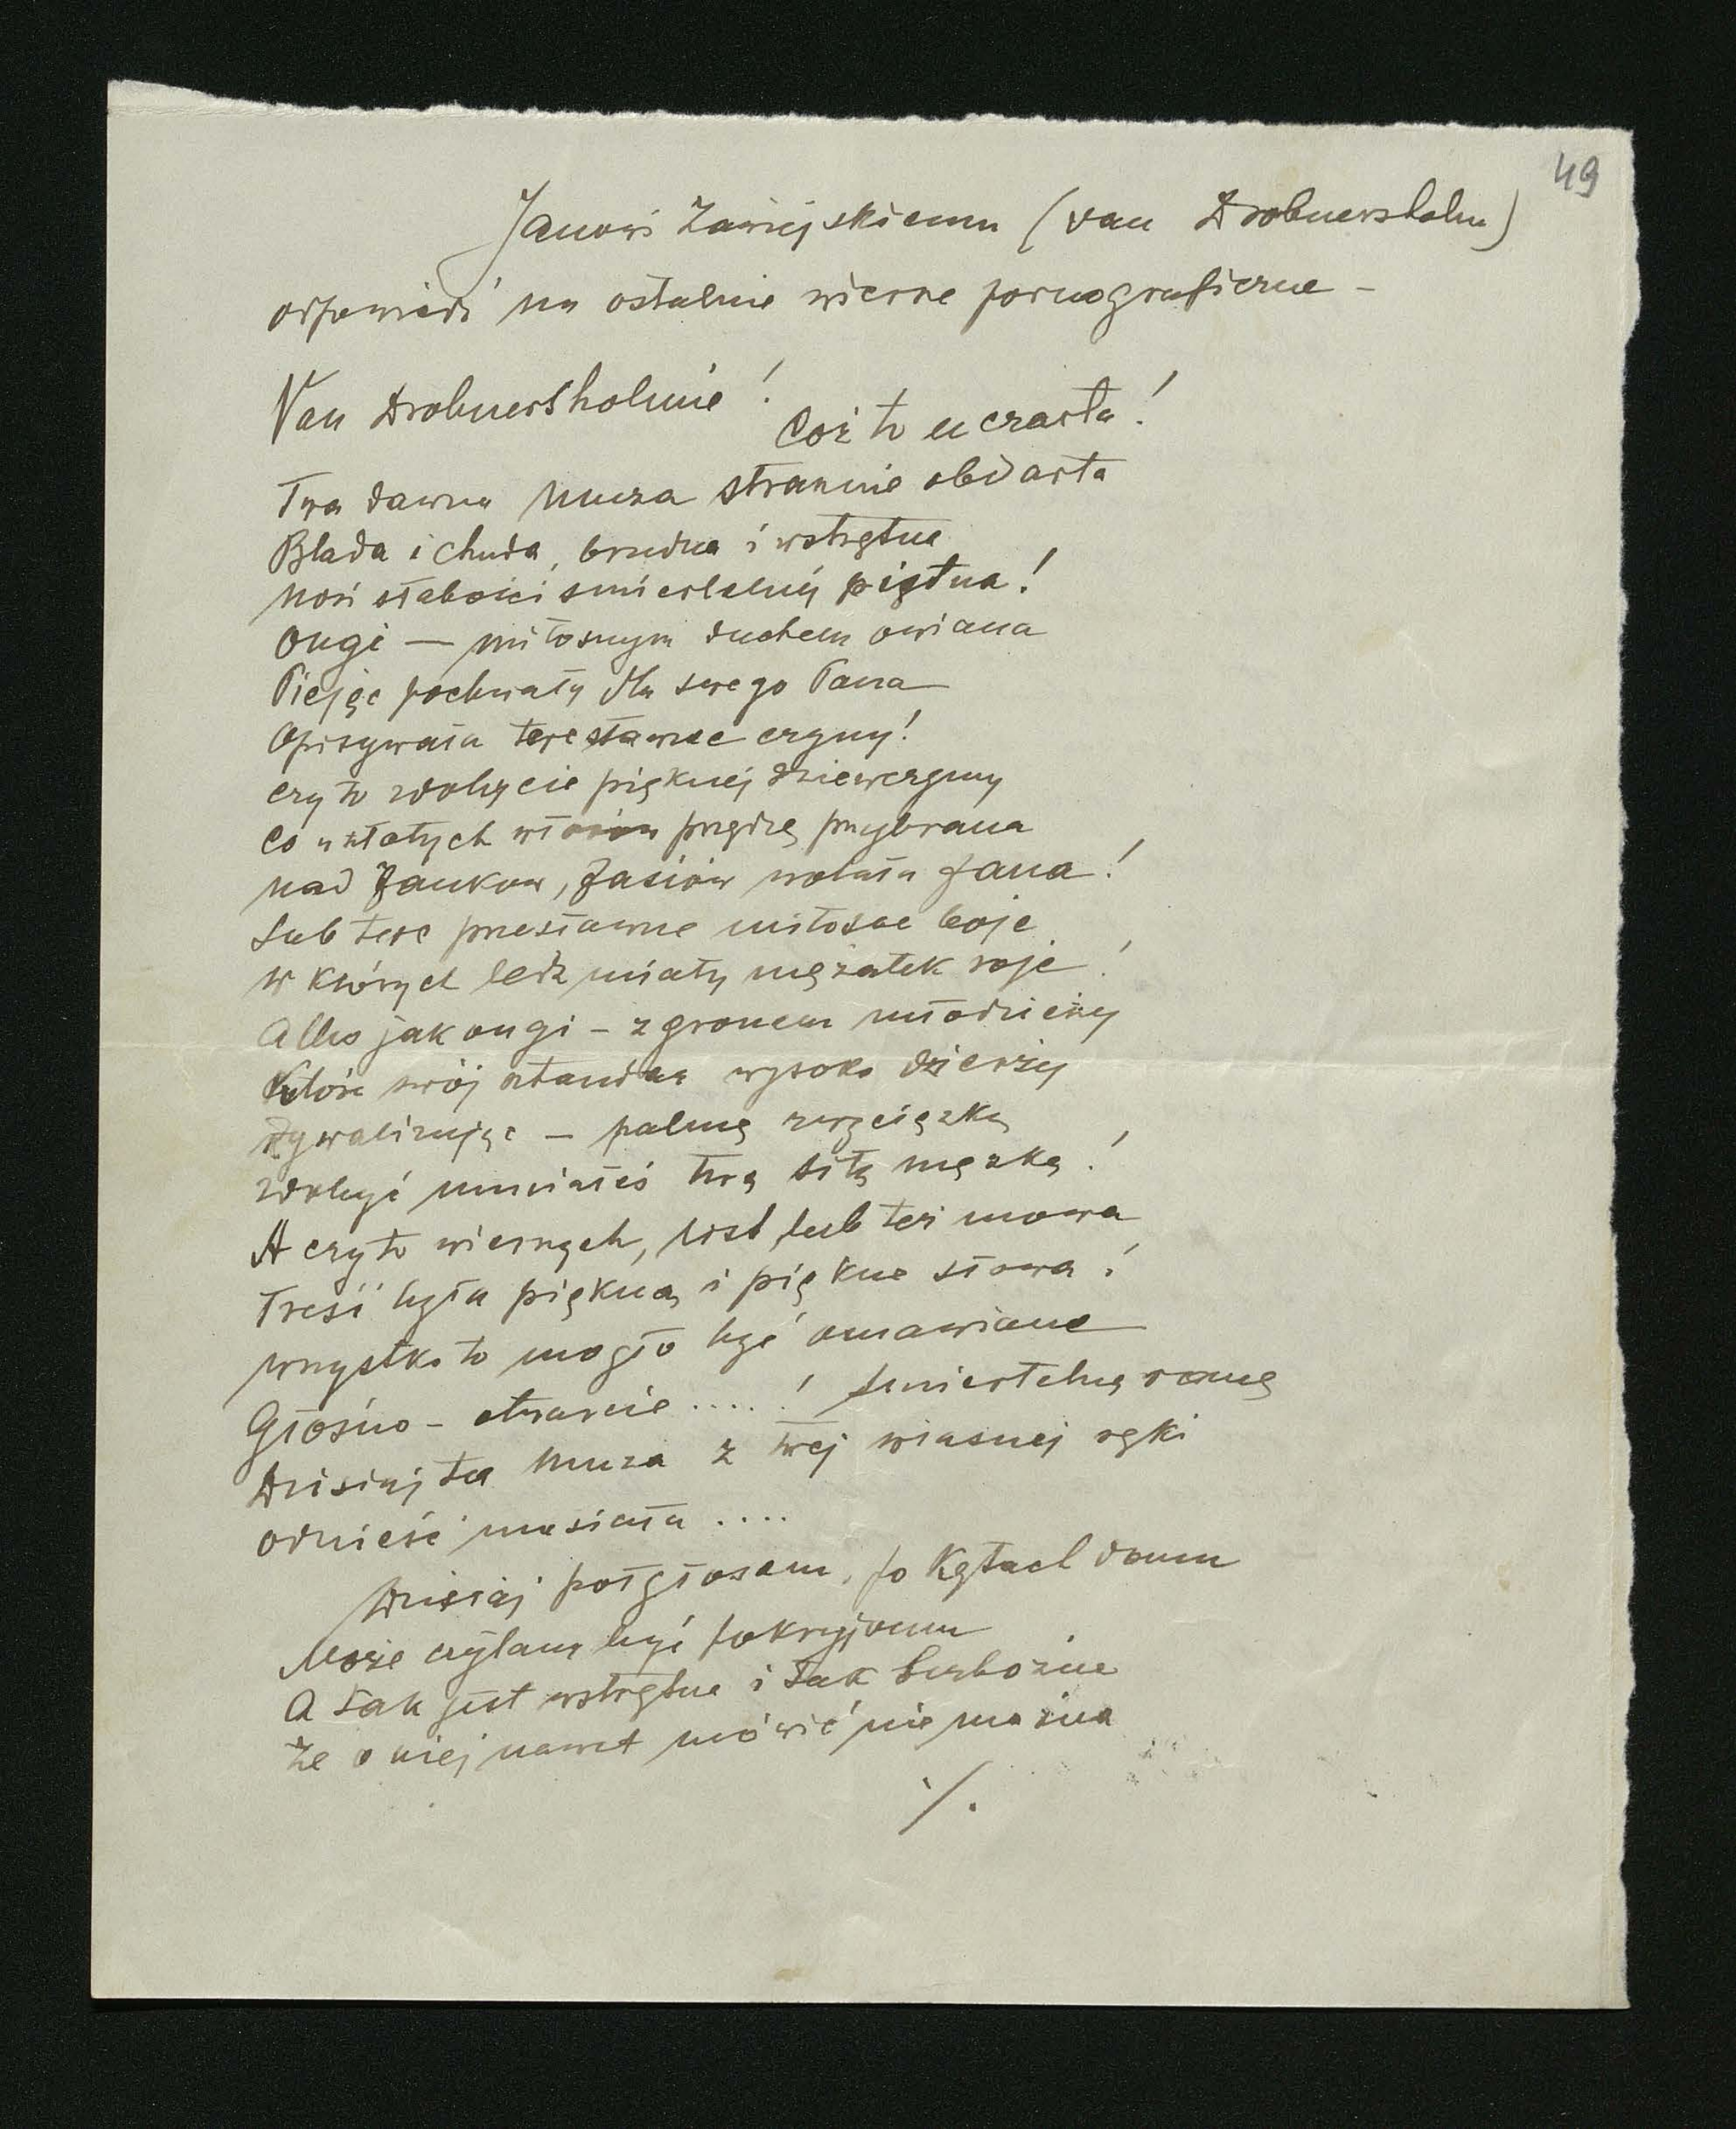 49
Janowi Zawiejskiemu (van Drobnersholm)
odpowiedź na ostatnie wiersze pornograficzne –
Van Drobnersholmie!
Cóż to u czarta!
Twa dawna Muza strasznie obdarta
Blada i chuda, brudna i wstrętna
Nosi słabości śmiertelnej piętna!
Ongi — miłosnym duchem owiana
Piejąc pochwały dla swego Pana
Opisywała teże sławne czyny!
czy to zdobycie pięknej dziewczyny
Co w złotych włosów przędzę przybrana
nad Janków, Jasiów wolała Jana!
Lub teże przesławne miłosne boje
w których ledz miały mężatek roje!
Albo jak ongi – z gronem młodzieży
Która swój sztandar wysoko dzierży
Rywalizując — palmę zwycięzką
zdobyć umiałeś twą siłą męzką!
A czy to wiersz był, list lub też mowa
Treść była piękna i piękne słowa!
wszystko to mogło być omawiane
Głośno – otwarcie .....! śmiertelną ranę
Dzisiaj ta Muza z twej własnej ręki
odnieść musiała ....
Dzisiaj półgłosem, po kątach domu
Może czytaną być pokryjomu
A tak jest wstrętna i tak bezbożna
że o niej nawet mówić nie można
./.